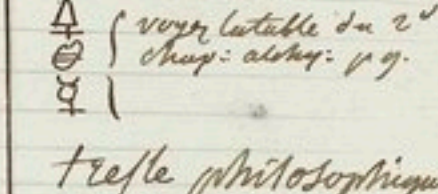 🜍 { voyez latable du 2ᵈ
🜔 chap: alchy: pg.
☿
trefle philosophique